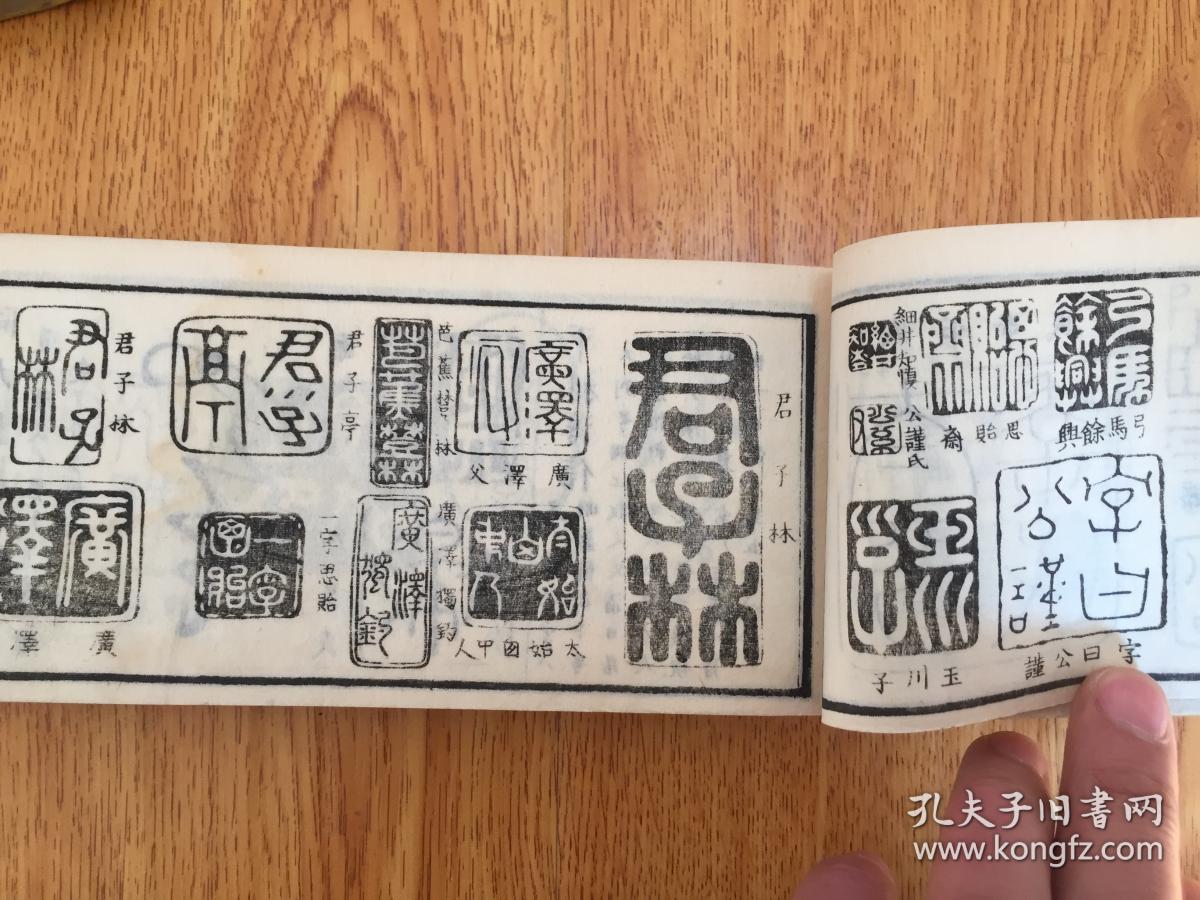 弓馬餘興
思貽齋
細井知慎
公謹氏
字曰公謹
玉川子
君子林
廣澤父
太始囪中人
芭蕉
林
廣澤獨釣
君子亭
一字思貽
君子林
廣澤
孔夫子旧书网
www.kongfz.com